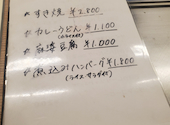 すき焼 ¥2,800
カレーうどん ¥1,100
麻婆豆腐 ¥1,000
煮込みハンバーグ ¥1,800
(ライス・サラダ付)